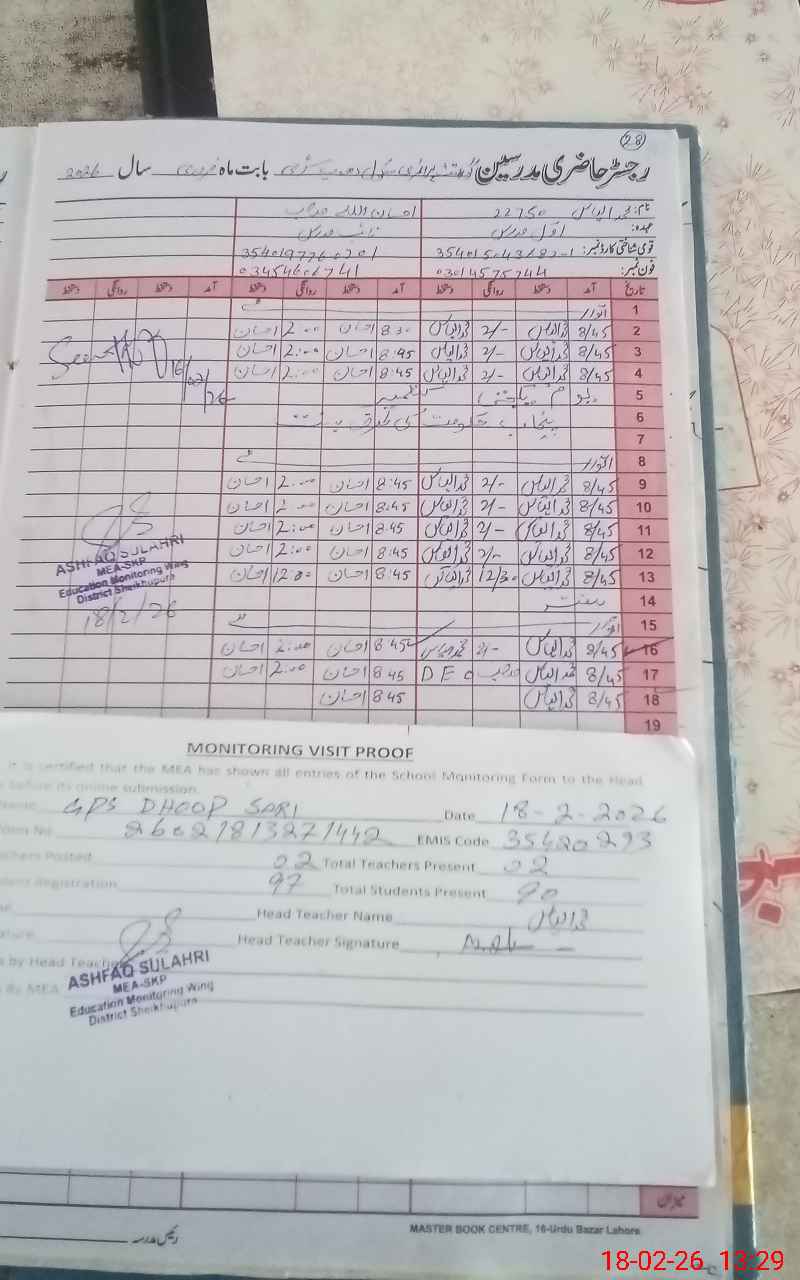 28
رجسٹر حاضری مدرسین گورنمنٹ پرائمری سکول دھوپ سڑی بابت ماہ فروری سال 2026
نام: محمد الیاس 22750 احسان اللہ
عہدہ: اول مدرس نائب مدرس
قومی شناختی کارڈ نمبر:
فون نمبر: 03014575744
تاریخ آمد دستخط روانگی دستخط آمد دستخط روانگی دستخط آمد دستخط روانگی دستخط
1 اتوار
2 8/45 محمد الیاس 2/- محمد الیاس 8 30 احسان 2:00 احسان
3 8/45 محمد الیاس 2/- محمد الیاس 8:45 احسان 2:00 احسان
4 8/45 محمد الیاس 2/- محمد الیاس 8:45 احسان 2:00 احسان
Seen
16/02/26
5 یوم یکجہتی کشمیر
6 پنجاب حکومت کی طرف سے
7
8 اتوار
9 8/45 محمد الیاس 2/- محمد الیاس 8:45 احسان 2:00 احسان
10 8/45 محمد الیاس 2/- محمد الیاس 8:45 احسان 2:00 احسان
11 8/45 محمد الیاس 2/- محمد الیاس 8:45 احسان 2:00 احسان
12 8/45 محمد الیاس 2/- محمد الیاس 8:45 احسان 2:00 احسان
13 8/45 محمد الیاس 12/30 محمد الیاس 8:45 احسان 12:00 احسان
ASHFAQ SULAHRI
MEA-SKP
Education Monitoring Wing
District Sheikhupura
18/2/26
14 ہفتہ
15 اتوار
16 8/45 محمد الیاس 2/- محمد الیاس 8:45 احسان 2:00 احسان
17 8/45 محمد الیاس DEO 8:45 احسان 2:00 احسان
18 8/45 محمد الیاس 8:45 احسان
19
MONITORING VISIT PROOF
It is certified that the MEA has shown all entries of the School Monitoring Form to the Head
before its online submission.
Name GPS DHOOP SARI Date 18-2-2026
No 26021813271442 EMIS Code 35420293
Posted 02 Total Teachers Present 02
Registration 97 Total Students Present 90
Head Teacher Name محمد الیاس
Head Teacher Signature
by Head Teacher
By MEA
ASHFAQ SULAHRI
MEA-SKP
Education Monitoring Wing
District Sheikhupura
میزان
رئیس مدرسہ
MASTER BOOK CENTRE, 16-Urdu Bazar Lahore.
18-02-26 13:29